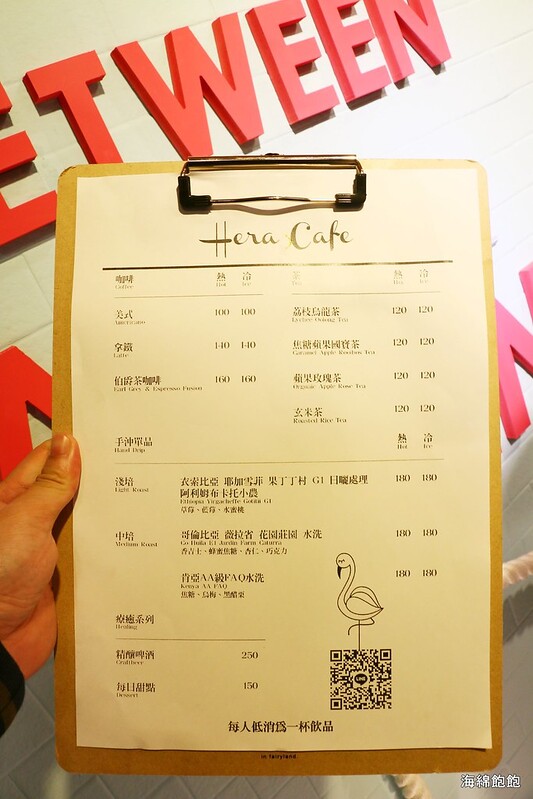 ETWEEN
Hera Cafe
咖啡 熱 冷
Coffee Hot Ice
美式 100 100
Americano
拿鐵 140 140
Latte
伯爵茶咖啡 160 160
Earl Grey & Espresso Fusion
茶 熱 冷
Tea Hot Ice
荔枝烏龍茶 120 120
Lychee Oolong Tea
焦糖蘋果國寶茶 120 120
Caramel Apple Rooibos Tea
蘋果玫瑰茶 120 120
Organic Apple Rose Tea
玄米茶 120 120
Roasted Rice Tea
手沖單品 熱 冷
Hand Drip Hot Ice
淺培 衣索比亞 耶加雪菲 果丁丁村 G1 日曬處理 180 180
Light Roast 阿利姆布卡托小農
Ethiopia Yirgacheffe Gotiti G1
草莓、藍莓、水蜜桃
中培 哥倫比亞 薇拉省 花園莊園 水洗 180 180
Medium Roast Co Huila El Jardin Farm Caturra
香吉士、蜂蜜焦糖、杏仁、巧克力
肯亞AA級FAQ水洗 180 180
Kenya AA FAQ
焦糖、烏梅、黑醋栗
療癒系列
Healing
精釀啤酒 250
Craftbeer
每日甜點 150
Dessert
LINE
每人低消為一杯飲品
in fairyland
海綿飽飽